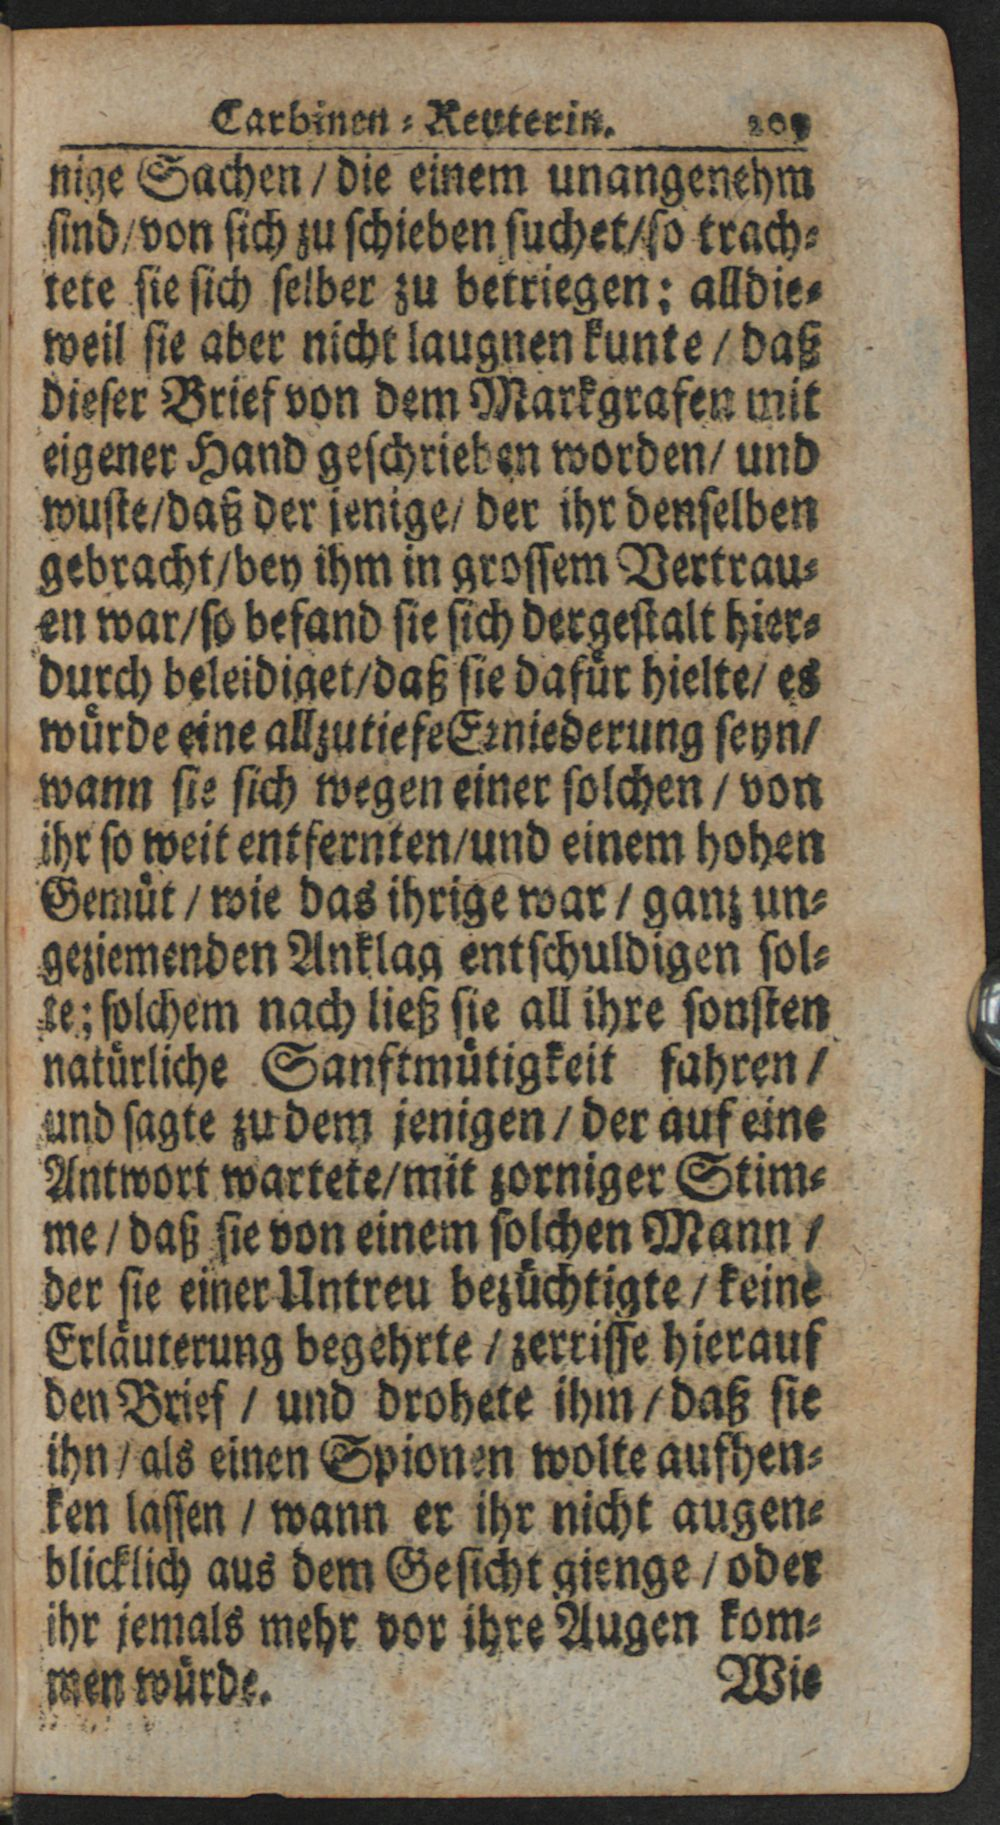 Carbinen-Reuterin.
nige Sachen / die einem unangenehm
sind / von sich zu schieben suchet / so trach-
tete sie sich selber zu betriegen; alldie-
weil sie aber nicht laugnen kunte / daß
dieser Brief von dem Markgrafen mit
eigener Hand geschrieben worden / und
wuste / daß der jenige / der ihr denselben
gebracht / bey ihm in grossem Vertrau-
en war / so befand sie sich dergestalt hier-
durch beleidiget / daß sie dafür hielte / es
würde eine allzutiefe Erniederung seyn /
wann sie sich wegen einer solchen / von
ihr so weit entfernten / und einem hohen
Gemüt / wie das ihrige war / ganz un-
geziemenden Anklag entschuldigen sol-
te; solchem nach ließ sie all ihre sonsten
natürliche Sanftmütigkeit fahren /
und sagte zu dem jenigen / der auf eine
Antwort wartete / mit zorniger Stim-
me / daß sie von einem solchen Mann /
der sie einer Untreu bezüchtigte / keine
Erläuterung begehrte / zerrisse hierauf
den Brief / und drohete ihm / daß sie
ihn / als einen Spionen wolte aufhen-
ken lassen / wann er ihr nicht augen-
blicklich aus dem Gesicht gienge / oder
ihr jemals mehr vor ihre Augen kom-
men würde.
Wie